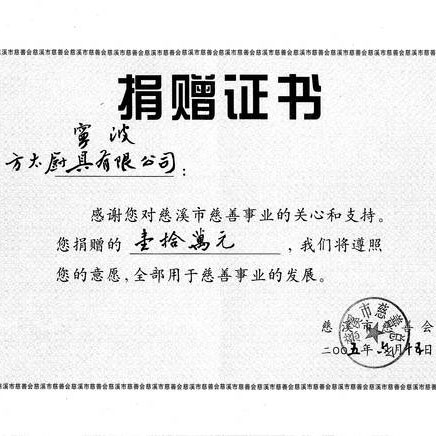 慈溪市慈善会慈溪市慈善会慈溪市慈善会慈溪市慈善会慈溪市慈善会慈溪市慈善会慈溪市慈善会慈溪市慈善会
捐赠证书
寧波
方太厨具有限公司：
感谢您对慈溪市慈善事业的关心和支持。
您捐赠的 壹拾萬元 ，我们将遵照
您的意愿，全部用于慈善事业的发展。
慈溪市慈善会
二00五年 月十五日
慈溪市慈善会慈溪市慈善会慈溪市慈善会慈溪市慈善会慈溪市慈善会慈溪市慈善会慈溪市慈善会慈溪市慈善会